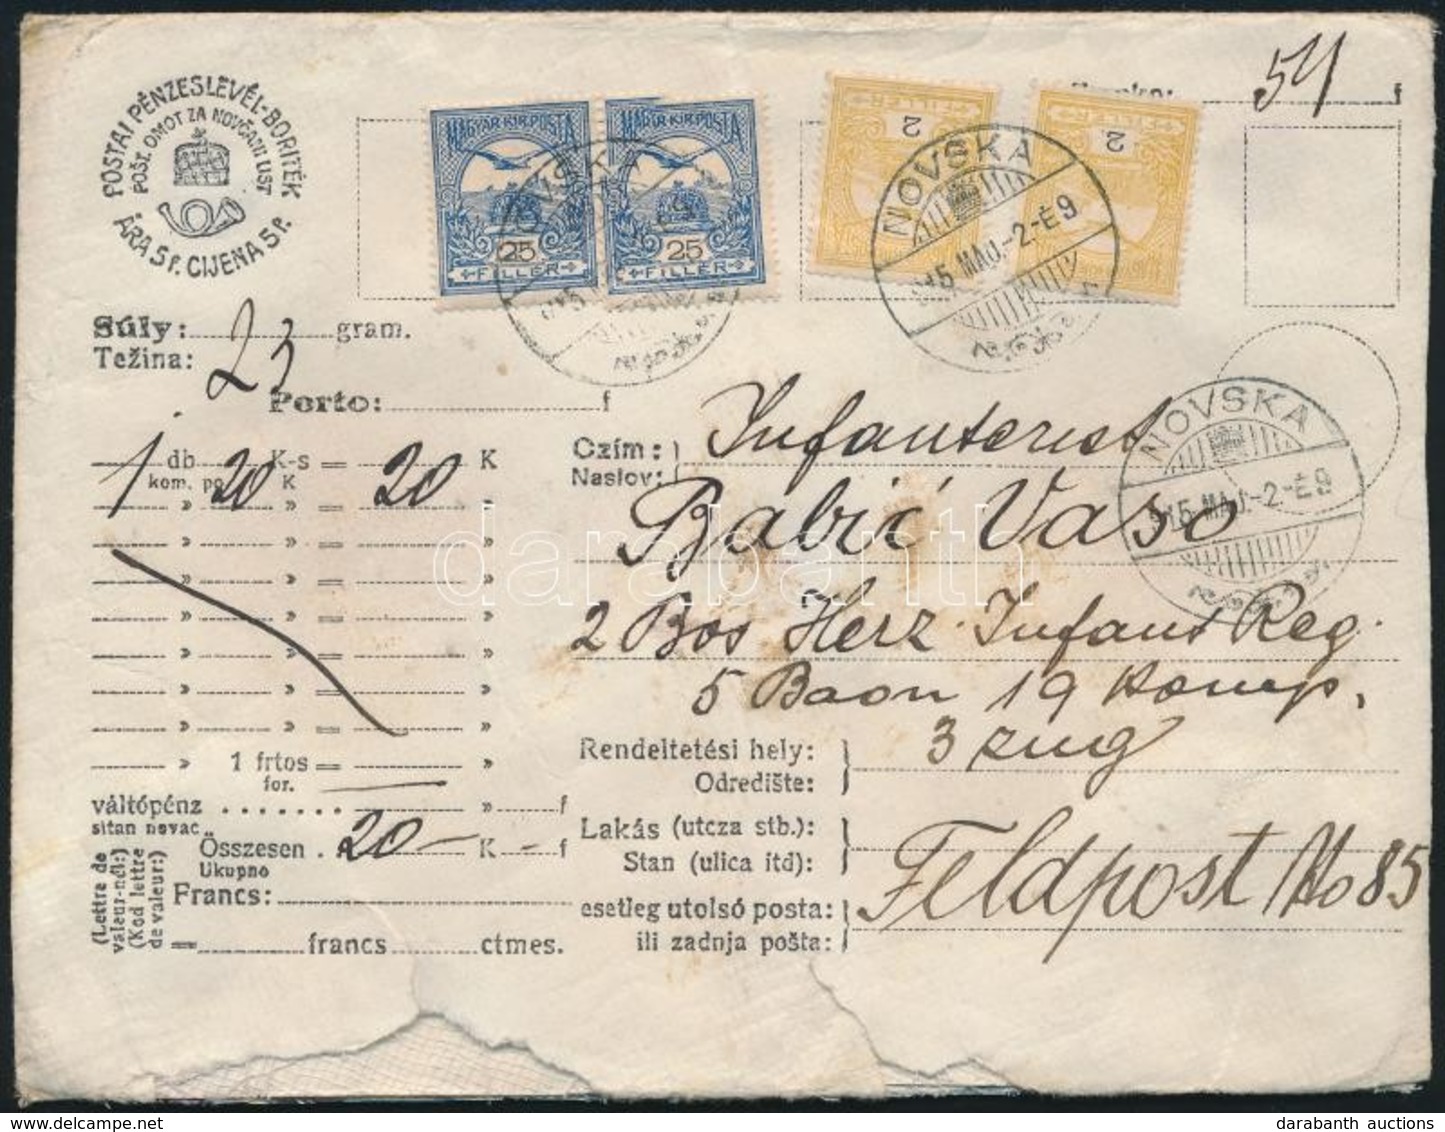 POSTAI PÉNZESLEVÉL-BORITÉK
POŠT. OMOT ZA NOVČANI LIST
ÁRA 5 f. CIJENA 5 f.
MAGYAR KIR. POSTA
25
FILLÉR
MAGYAR KIR. POSTA
25
FILLÉR
2
FILLÉR
2
FILLÉR
54 f
NOVSKA
915 MAJ.-2.-É9
NOVSKA
NOVSKA
915 MAJ.-2.-É9
Súly: 23 gram.
Težina:
Porto: f
1 db 20 K-s = 20 K
kom. po K
» » = »
» » = »
» » = »
» » = »
» » = »
» » = »
» » = »
» 1 frtos = »
for.
váltópénz . . . . . . . » f
sitan novac
Összesen . 20 — K - f
Ukupno
(Lettre de valeur-nél:)
(Kod lettre de valeur:)
Francs:
= francs ctmes.
Czím: Infanterist
Naslov:
Babić Vaso
2 Bos Herz. Infant Reg.
5 Baon 19 Komp.
3 zug
Rendeltetési hely:
Odredište:
Lakás (utcza stb.):
Stan (ulica itd):
Feldpost No 85
esetleg utolsó posta:
ili zadnja pošta:
darabanth
darabanth auctions
delcampe.net